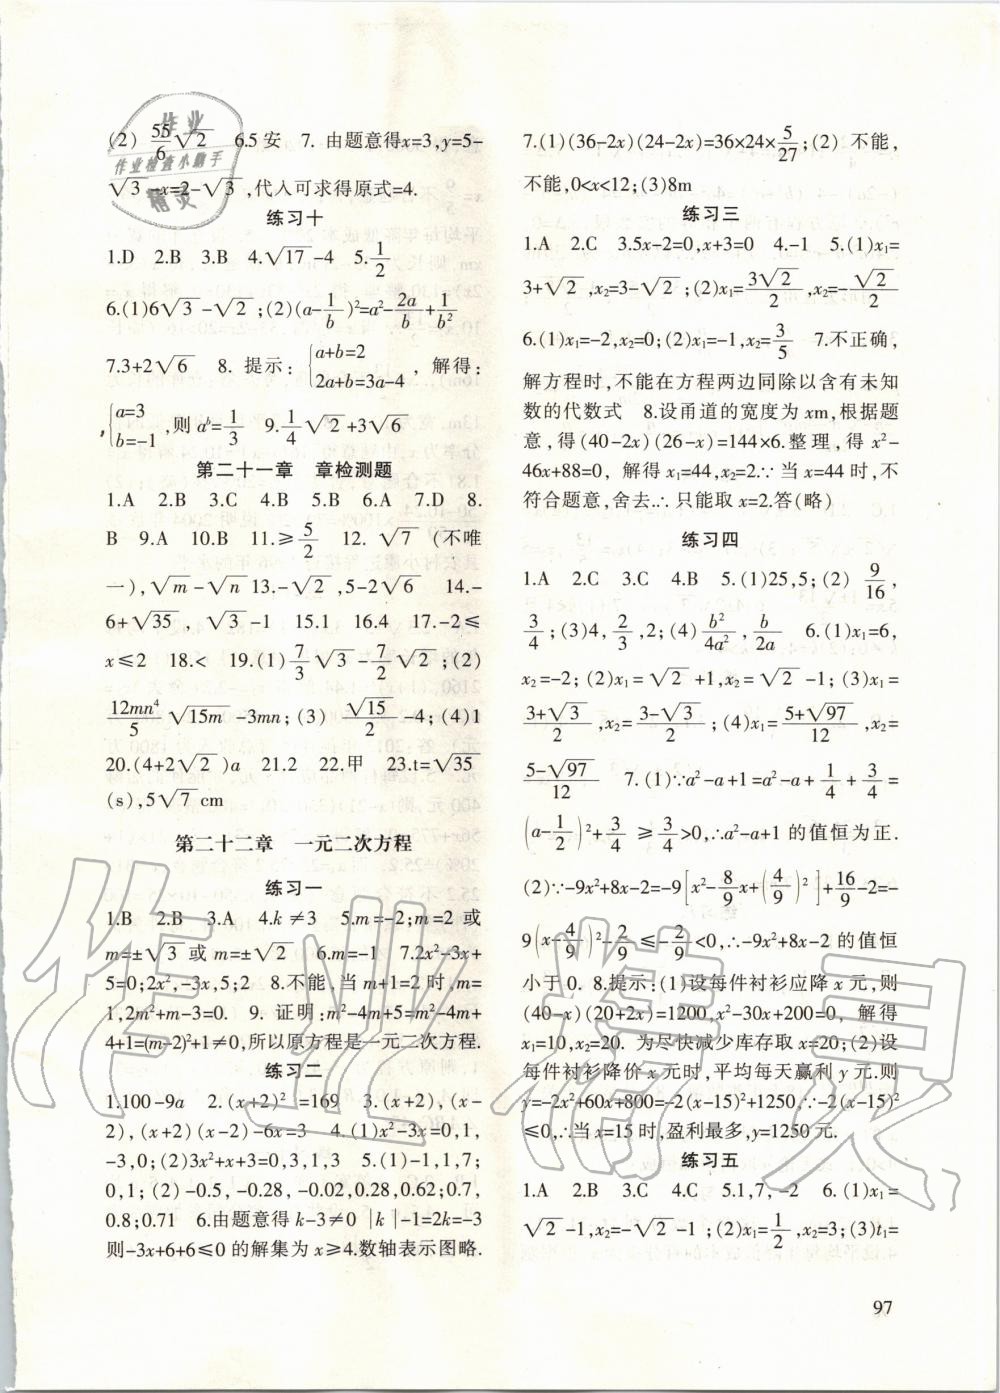 (2) 55/6√2 6.5安 7. 由题意得x=3,y=5-
√3-x=2-√3,代入可求得原式=4.
练习十
1.D 2.B 3.B 4.√17-4 5.1/2
6.(1)6√3-√2;(2)(a-1/b)²=a²-2a/b+1/b²
7.3+2√6 8. 提示:{a+b=2 2a+b=3a-4, 解得:
,{a=3 b=-1,则a^b=1/3 9.1/4√2+3√6
第二十一章 章检测题
1.A 2.B 3.C 4.B 5.B 6.A 7.D 8.
B 9.A 10.B 11.≥5/2 12. √7 (不唯
一),√m-√n 13.-√2,5-2√6 14.-
6+√35, √3-1 15.1 16.4 17.-2≤
x≤2 18.< 19.(1)7/3√3-7/2√2;(2)
12mn⁴/5√15m-3mn;(3) √15/2-4;(4)1
20.(4+2√2)a 21.2 22.甲 23.t=√35
(s),5√7cm
第二十二章 一元二次方程
练习一
1.B 2.B 3.A 4.k≠3 5.m=-2;m=2或
m=±√3或m=±√2 6.m=-1 7.2x²-3x+
5=0;2x²,-3x,5;2 8.不能,当m+1=2时,m=
1,2m²+m-3=0. 9. 证明:m²-4m+5=m²-4m+
4+1=(m-2)²+1≠0,所以原方程是一元二次方程.
练习二
1.100-9a 2.(x+2)²=169 3.(x+2),(x-
2),(x+2)(x-2)-6x=3 4.(1)x²-3x=0,1,
-3,0;(2)3x²+x+3=0,3,1,3 5.(1)-1,1,7;
0,1;(2)-0.5,-0.28,-0.02,0.28,0.62;0.7,
0.8;0.71 6.由题意得k-3≠0 |k|-1=2k=-3
则-3x+6+6≤0的解集为x≥4.数轴表示图略.
7.(1)(36-2x)(24-2x)=36×24×5/27;(2) 不能,
不能,0<x<12;(3)8m
练习三
1.A 2.C 3.5x-2=0,x+3=0 4.-1 5.(1)x₁=
3+√2,x₂=3-√2;(2)x₁=3√2/2,x₂=-√2/2
6.(1)x₁=-2,x₂=0;(2)x₁=-1,x₂=3/5 7.不正确,
解方程时,不能在方程两边同除以含有未知
数的代数式 8.设甬道的宽度为xm,根据题
意,得(40-2x)(26-x)=144×6.整理,得x²-
46x+88=0,解得x₁=44,x₂=2.∵当x=44时,不
符合题意,舍去.∴只能取x=2.答(略)
练习四
1.A 2.C 3.C 4.B 5.(1)25,5;(2) 9/16,
3/4;(3)4,2/3,2;(4)b²/4a²,b/2a 6.(1)x₁=6,
x₂=-2;(2)x₁=√2+1,x₂=√2-1;(3)x₁=
3+√3/2,x₂=3-√3/2;(4)x₁=5+√97/12,x₂=
5-√97/12 7.(1)∵a²-a+1=a²-a+1/4+3/4=
(a-1/2)²+3/4≥3/4>0,∴a²-a+1的值恒为正.
(2)∵-9x²+8x-2=-9[x²-8/9x+(4/9)²]+16/9-2=-
9(x-4/9)²-2/9≤-2/9<0,∴-9x²+8x-2的值恒
小于0. 8.提示:(1)设每件衬衫应降x元,则
(40-x)(20+2x)=1200,x²-30x+200=0, 解得
x₁=10,x₂=20. 为尽快减少库存取x=20;(2)设
每件衬衫降价x元时,平均每天赢利y元.则
y=-2x²+60x+800=-2(x-15)²+1250,∵-2(x-15)²
≤0,∴当x=15时,盈利最多,y=1250元.
练习五
1.A 2.B 3.C 4.C 5.1,7,-2 6.(1)x₁=
√2-1,x₂=-√2-1;(2)x₁=1/2,x₂=3;(3)t₁=
97
作业
作业检查小助手
精灵
作业精灵